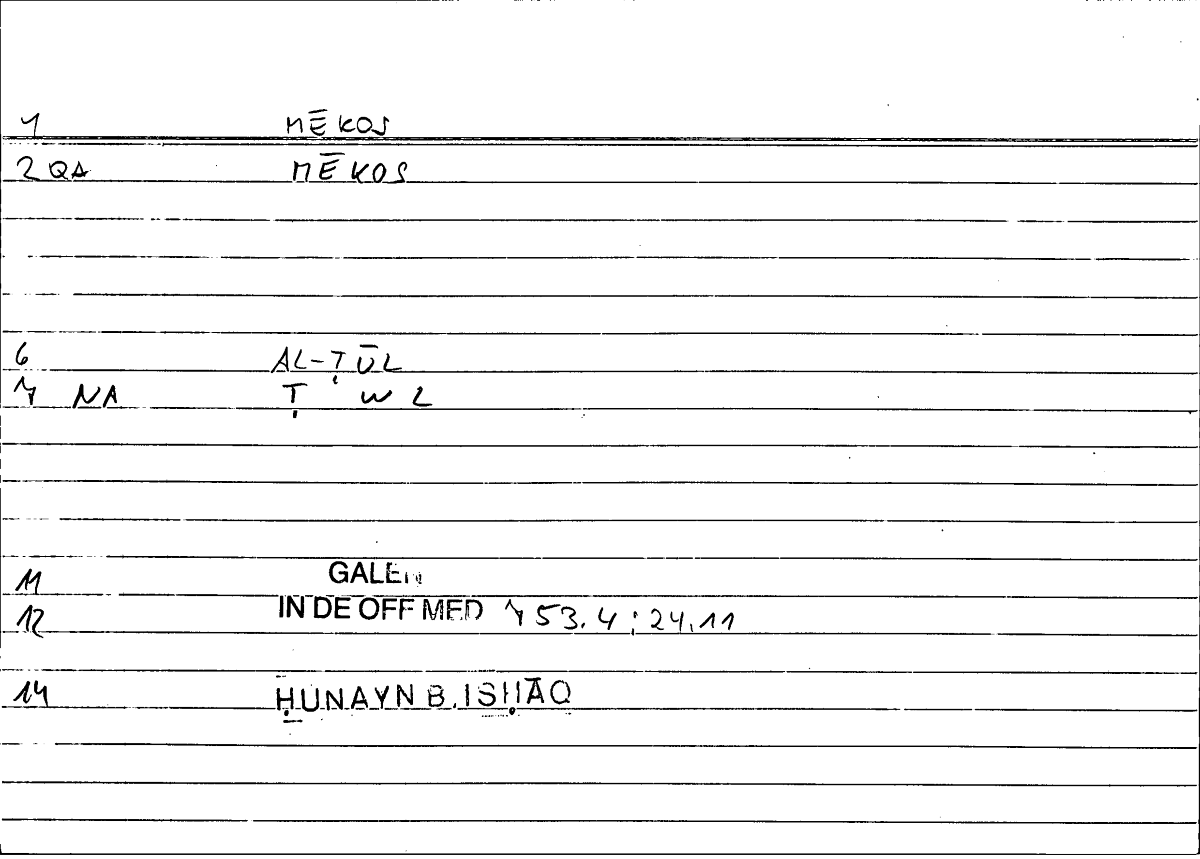 1 MĒKOS
2 QA MĒKOS
6 AL-ṬŪL
7 NA Ṭ W L
11 GALEN
12 IN DE OFF MED 753.4; 24,11
14 ḤUNAYN B. ISḤĀQ